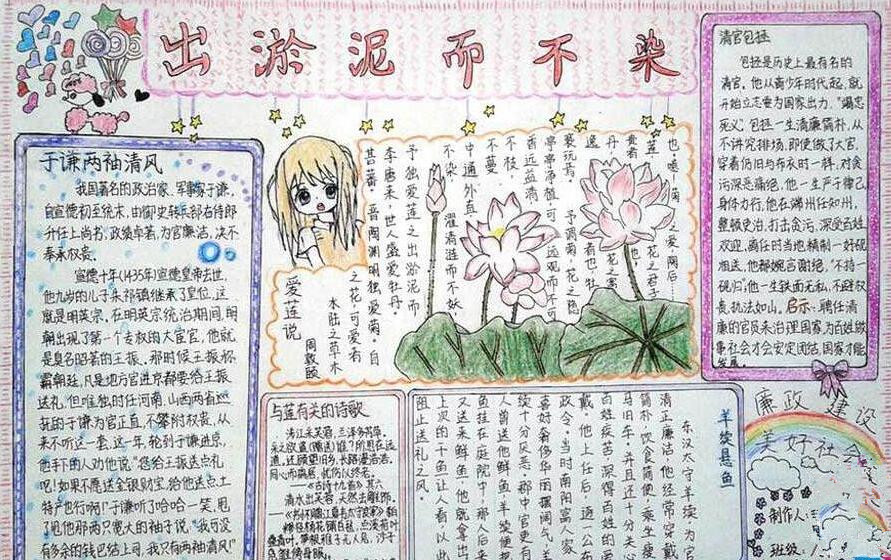 出淤泥而不染
于谦两袖清风
我国著名的政治家、军事家于谦,
自宣德初至统末,由御史转兵部右侍郎
升任上尚书,政绩卓著,为官廉洁,决不
奉承权贵。
宣德十年(1435年)宣德皇帝去世,
他九岁的儿子朱祁镇继承了皇位,这
就是明英宗,在明英宗统治期间,明
朝出现了第一个专权的大宦官,他就
是臭名昭著的王振,那时候王振称
霸朝廷,凡是地方官进京都要给王振
送礼,但唯独时任河南、山西两省巡
抚的于谦为官正直,不攀附权贵,从
来不听这一套,这一年,轮到于谦进京,
他手下的人劝他说"您给王振送点礼
吧!如果不愿送金银财宝,给他送点土
特产也行啊!"于谦听了哈哈一笑,甩
了甩他那两只宽大的袖子说"我可没
有多余的钱巴结上司,我只有两袖清风!"
爱莲说
周敦颐
水陆之草木
之花,可爱者
甚蕃。晋陶渊明独爱菊。自
李唐来,世人盛爱牡丹。
予独爱莲之出淤泥而
不染,濯清涟而不妖,
中通外直,
不蔓
不枝,
香远益清
亭亭净植,可远观而不可
亵玩焉。予谓菊,花之隐
逸
丹,花之富
贵者
莲,花之君子
也。噫!菊之爱,陶后
清官包拯
包拯是历史上最有名的
清官。他从青少年时代起,就
开始立志要为国家出力。"竭忠
死义"。包拯一生清廉简朴,从
不讲究排场,即使做了大官,
穿着仍旧与布衣时一样,对贪
污深恶痛绝,他一生严于律己,
身体力行,他在端州任知州,
整顿吏治,打击贪污,深受百姓
欢迎,离任时当地精制一好砚
相送,他都婉言谢绝。"不持一
砚归",他一生铁面无私,不避权
贵,执法如山。启示:聘任清
廉的官员来治理国家,为百姓做
事社会才会安定团结,国家才能
发展。
与莲有关的诗歌
涉江采芙蓉,兰泽多芳草,
采之欲遗谁?所思在远
道,还顾望旧乡,长路漫浩浩,
同心而离居,忧伤以终老。
—《古诗十九首》其六
清水出芙蓉,天然去雕饰。
羊续悬鱼
东汉太守羊续,为官
清正廉洁,他经常穿戴
简朴,饮食简便,乘坐瘦
马旧车,并且还十分关心
百姓疾苦,深得百姓的爱
戴,他上任后,逐一公布
政令,当时南阳富人家
喜好奢侈华丽摆阔气,羊
续十分厌恶,郡中官吏有
人曾送他鲜鱼,羊续便把
鱼挂在庭院中,那人后来
又送来鲜鱼,他就拿出
上次的干鱼让人看,以此
阻止送礼之风。
廉政建设
美好社会
制作人:
班级